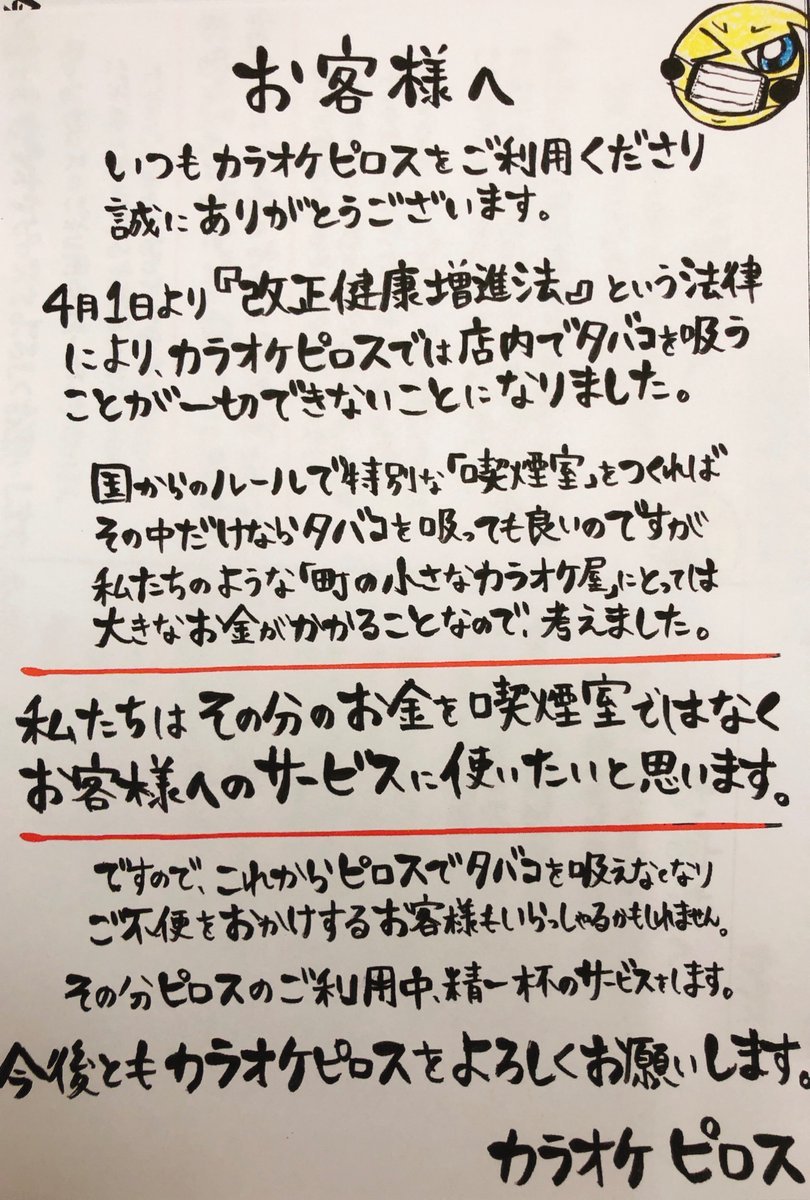 お客様へ
いつもカラオケピロスをご利用くださり
誠にありがとうございます。
4月1日より『改正健康増進法』という法律
により、カラオケピロスでは店内でタバコを吸う
ことが一切できないことになりました。
国からのルールで特別な「喫煙室」をつくれば
その中だけならタバコを吸っても良いのですが
私たちのような「町の小さなカラオケ屋」にとっては
大きなお金がかかることなので、考えました。
私たちはその分のお金を喫煙室ではなく
お客様へのサービスに使いたいと思います。
ですので、これからピロスでタバコを吸えなくなり
ご不便をおかけするお客様もいらっしゃるかもしれません。
その分ピロスのご利用中、精一杯のサービスをします。
今後ともカラオケピロスをよろしくお願いします。
カラオケ ピロス